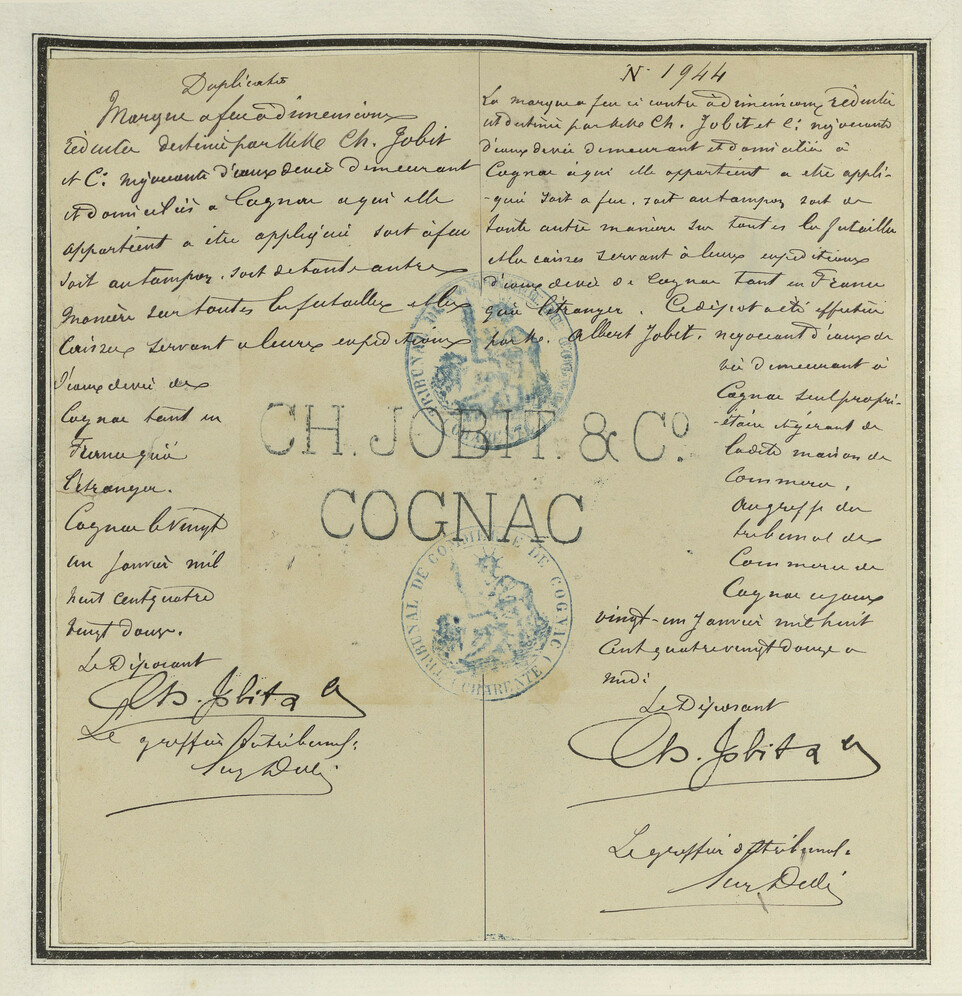 Duplicata
Marque a feu à dimensions
Réduites destinée par MM Ch. Jobit
et Cie négociants d'eaux devie demeurant
et domiciliés a Cognac a qui elle
appartient a être appliquée soit à feu
soit au tampon, soit de toute autre
Manière sur toutes les futailles et les
Caisses servant a leurs expéditions
d'eaux devie de
Cognac tant en
France qu'à
l'étranger.
Cognac le vingt
un Janvier mil
huit cent quatre
vingt douze.
Le Déposant
Ch. Jobit & Co
Le greffier du tribunal:
N° 1944
La marque a feu ci contre à dimensions Réduites
et destinée par MM Ch. Jobit et Cie négociants
d'eaux devie demeurant et domiciliés à
Cognac à qui elle appartient a être appli-
-quée soit a feu, soit au tampon soit de
toute autre manière sur toutes les futailles
et les caisses servant à leurs expéditions
d'eaux devie de Cognac tant en France
qu'à l'étranger. Ce dépot a été effectué
par M. Albert Jobit, négociant d'eaux de
vie demeurant à
Cognac seul propri-
-étaire et gérant de
ladite maison de
Commerce,
au greffe du
tribunal de
Commerce de
Cognac cejour
vingt-un Janvier mil huit
Cent quatre vingt douze a
midi
Le Déposant
Ch. Jobit & Co
Le greffier du tribunal:
CH. JOBIT. & Co.
COGNAC
TRIBUNAL DE COMMERCE DE COGNAC
(CHARENTE)
TRIBUNAL DE COMMERCE DE COGNAC
(CHARENTE)